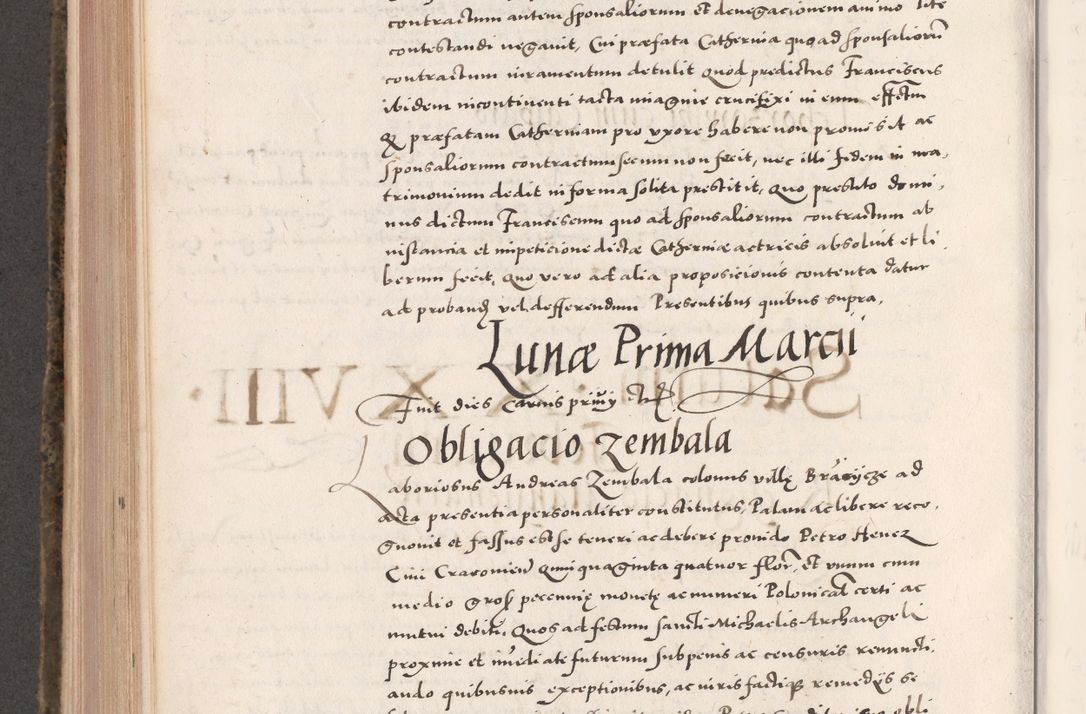 contractum autem sponsaliorum et denegacionem animo lite
contestandi negavit, Cui præfata Catherina quo ad sponsaliorū
contractum iuramentum detulit Quod predictus Franciscus
ibidem incontinenti tacta imagine crucifixi in eum effectum
Q̨ præfatam Catherinam pro uxore habere non promisit ac
sponsaliorum contractum secum non fecit, nec illi fidem in ma,
trimonium dedit in forma solita prestitit, Quo prestito domi,
nus dictum Franciscum quo ad sponsaliorum contractum ab
instancia et impeticione dictæ Catherinæ actricis absoluit et li
berum fecit, Quo vero ad alia proposicionis contenta datur
ad proband vel defferendum Presentibus quibus supra,
Lunæ Prima Marcii
Fuit dies Carnis privy
Obligacio Zembala
Laboriosus Andreas Zembala colonus villę ad
acta presentia personaliter constitutus, Palam ac libere reco,
gnovit et fassus est se teneri ac debere provido Petro Henez
Civi Cracovien Quinquaginta quatuor floñ, et unum cum
medio gross pecunię monetę ac numeri Polonical certi ac
mutui debiti, Quos ad festum sancti Michaelis Archangeli
proxime et imediate futurum sub penis ac censuris renuncti,
ando quibusuis exceptionibus, ac iuris factique remedijs se